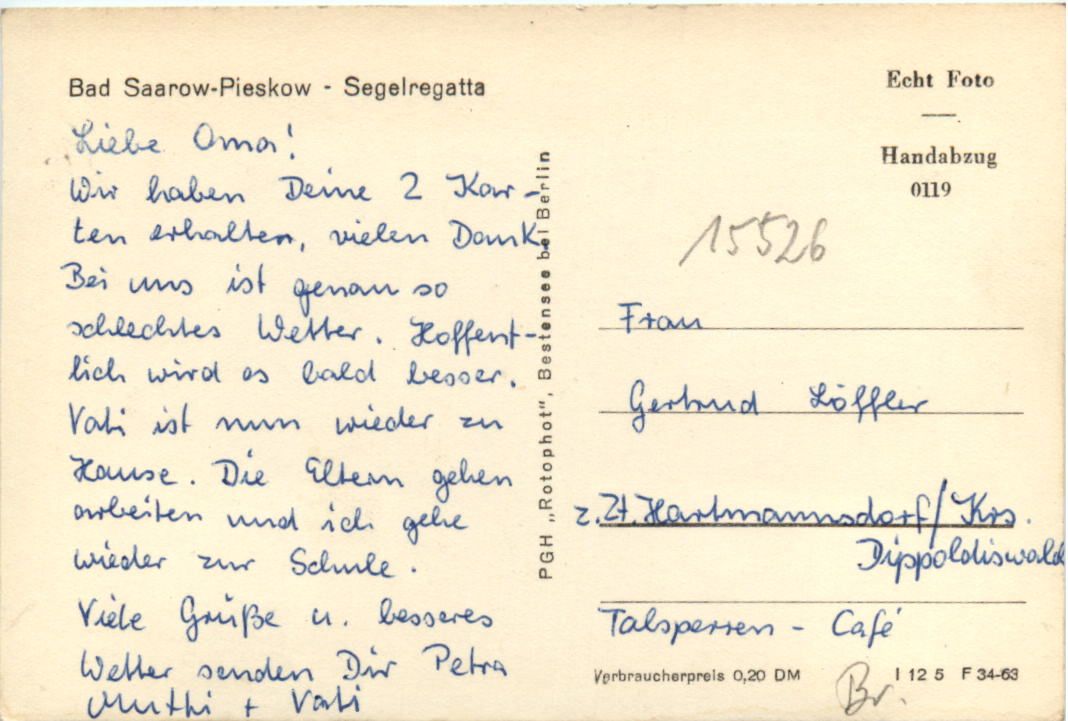 Bad Saarow-Pieskow - Segelregatta
Liebe Oma!
Wir haben Deine 2 Kar-
ten erhalten, vielen Dank.
Bei uns ist genau so
schlechtes Wetter. Hoffent-
lich wird es bald besser.
Vati ist nun wieder zu
Hause. Die Eltern gehen
arbeiten und ich gehe
wieder zur Schule.
Viele Grüße u. besseres
Wetter senden Dir Petra
Mutti + Vati
PGH „Rotophot", Bestensee bei Berlin
Echt Foto
Handabzug
0119
15526
Frau
Gertrud Löffler
z.Zt. Hartmannsdorf/Krs.
Dippoldiswald
Talsperren - Café
Verbraucherpreis 0,20 DM
I 12 5 F 34-63
Br.